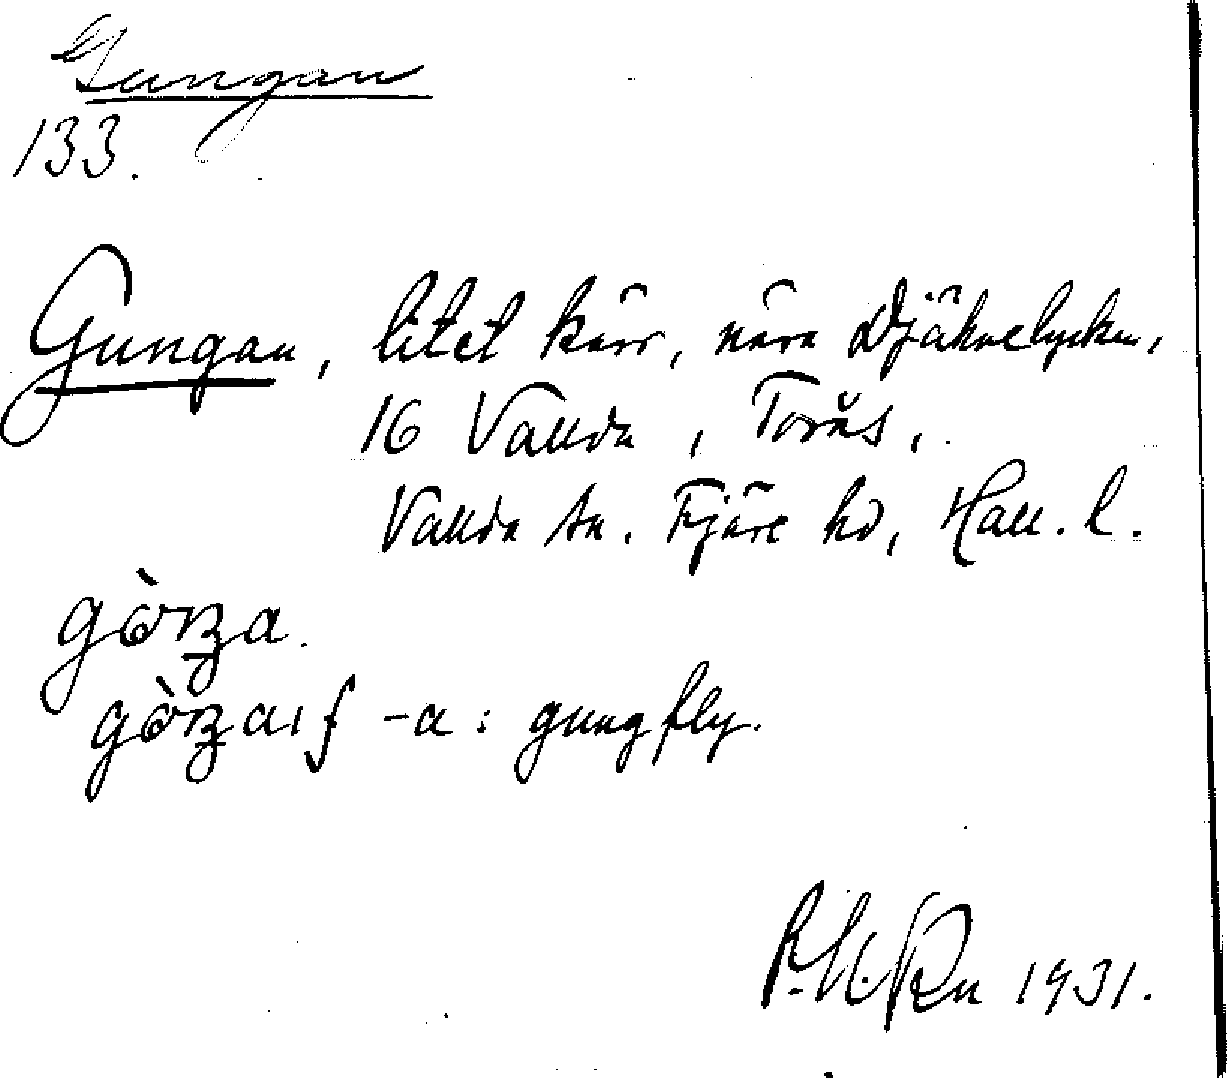 Gungan
133.
Gungan, litet kärr, nära Djäknelyckan,
16 Vallda, Torås,
Vallda sn. Fjäre hd, Hall. l.
-a: gungfly.
1931.